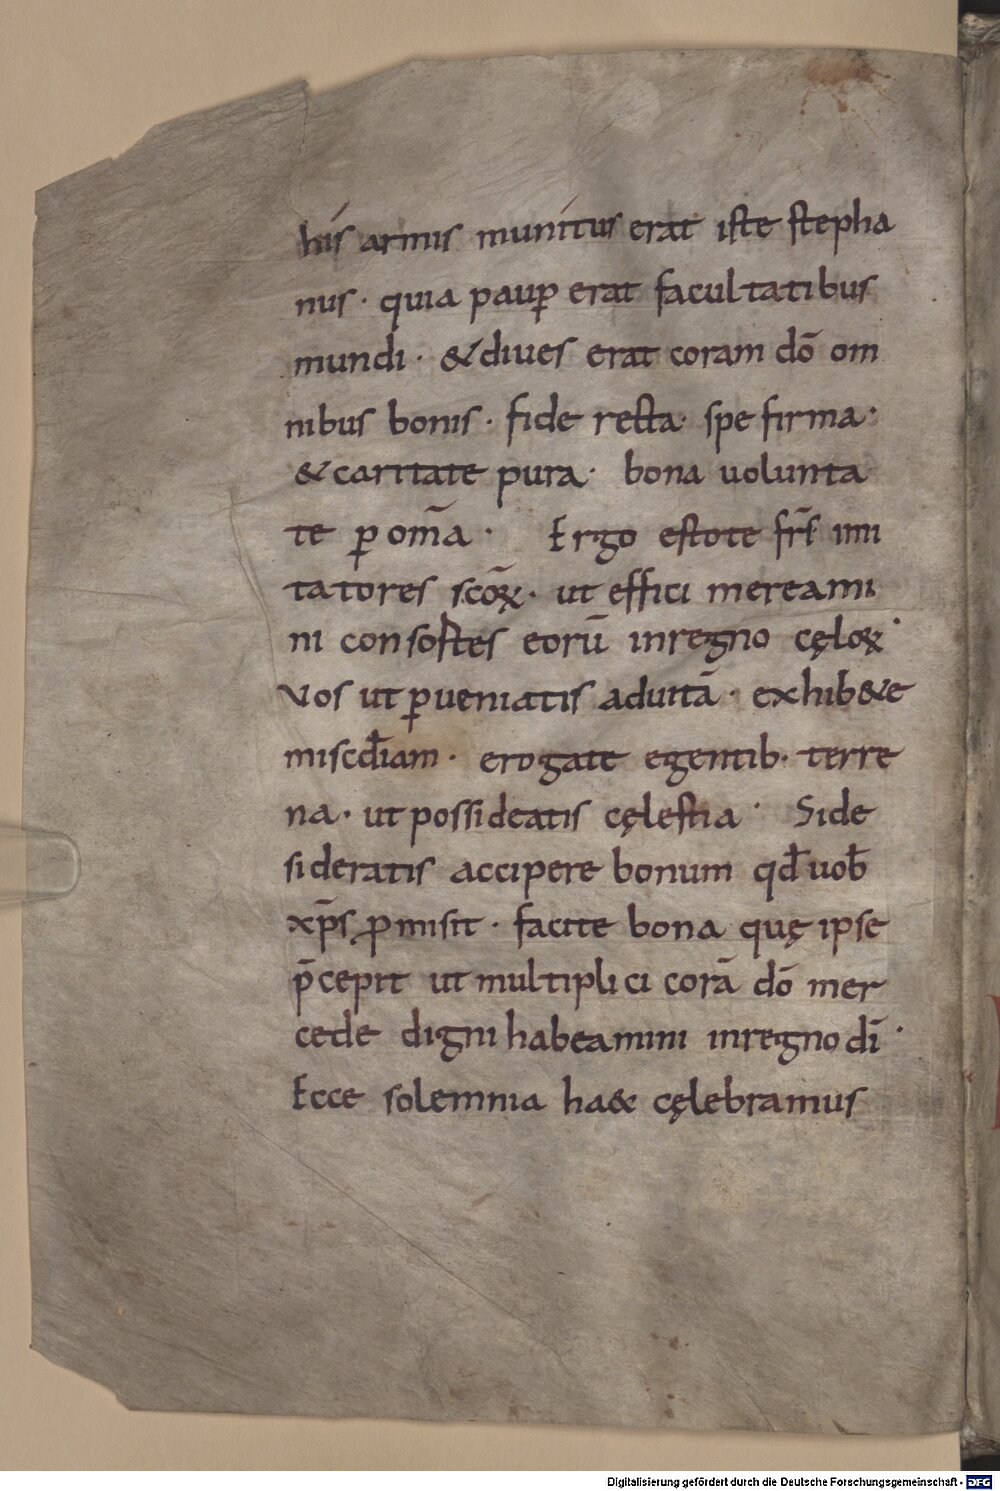 his armis munitus erat iste stepha
nus · quia paup̲ erat facultatibus
mundi · & diues erat coram dō om
nibus bonis · fide recta · spe firma ·
& caritate pura · bona uolunta
te ꝑ om̄a · Ergo estote fr̄s imi
tatores scōꝝ · ut effici mereami
ni consortes eorū inregno cęloꝝ ·
Vos ut ꝑueniatis aduitā · exhib&e
miscd̄iam · erogate egentib · terre
na · ut possideatis cęlestia · Side
sideratis accipere bonum qd̄ uob̄
xp̄s ꝓmisit · facite bona quę ipse
p̄cepit ut multiplici corā dō mer
cede digni habeamini inregno dī ·
Ecce solemnia ha&c cęlebramus
Digitalisierung gefördert durch die Deutsche Forschungsgemeinschaft - DFG